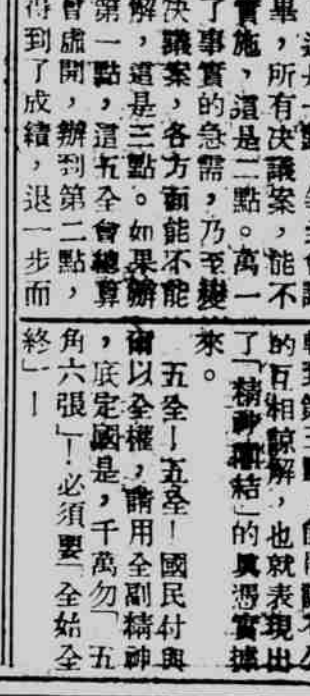 畢，所有决議案，能不
實施，這是二點。萬一
了事實的急需，乃至變
决議案，各方面能不能
解，這是三點。如果辦
第一點，這五全會總算
會虛開，辦到第二點，
得到了成績，退一步而
的互相諒解，也就表現出
了「精神團結」的眞憑實據
來。
五全！五全！國民付與
以全權，請用全副精神
，底定國是，千萬勿「五
角六張」！必須要「全始全
終」！